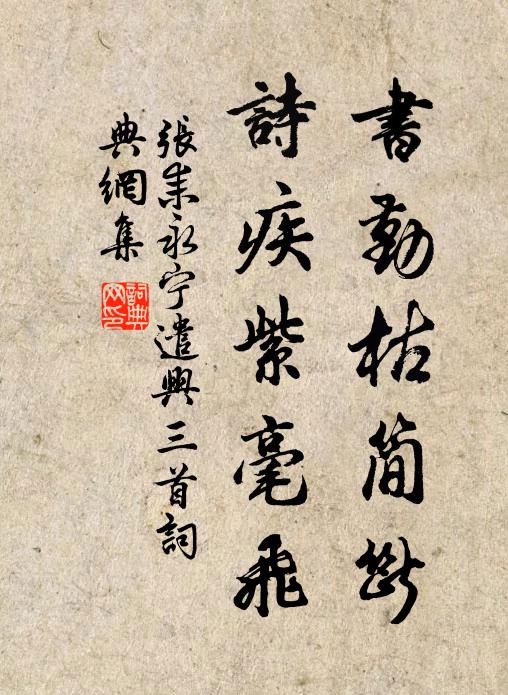 書勤枯簡斷
詩疾紫毫飛
張耒永宁遣興三首詞
典網集
詞典網印